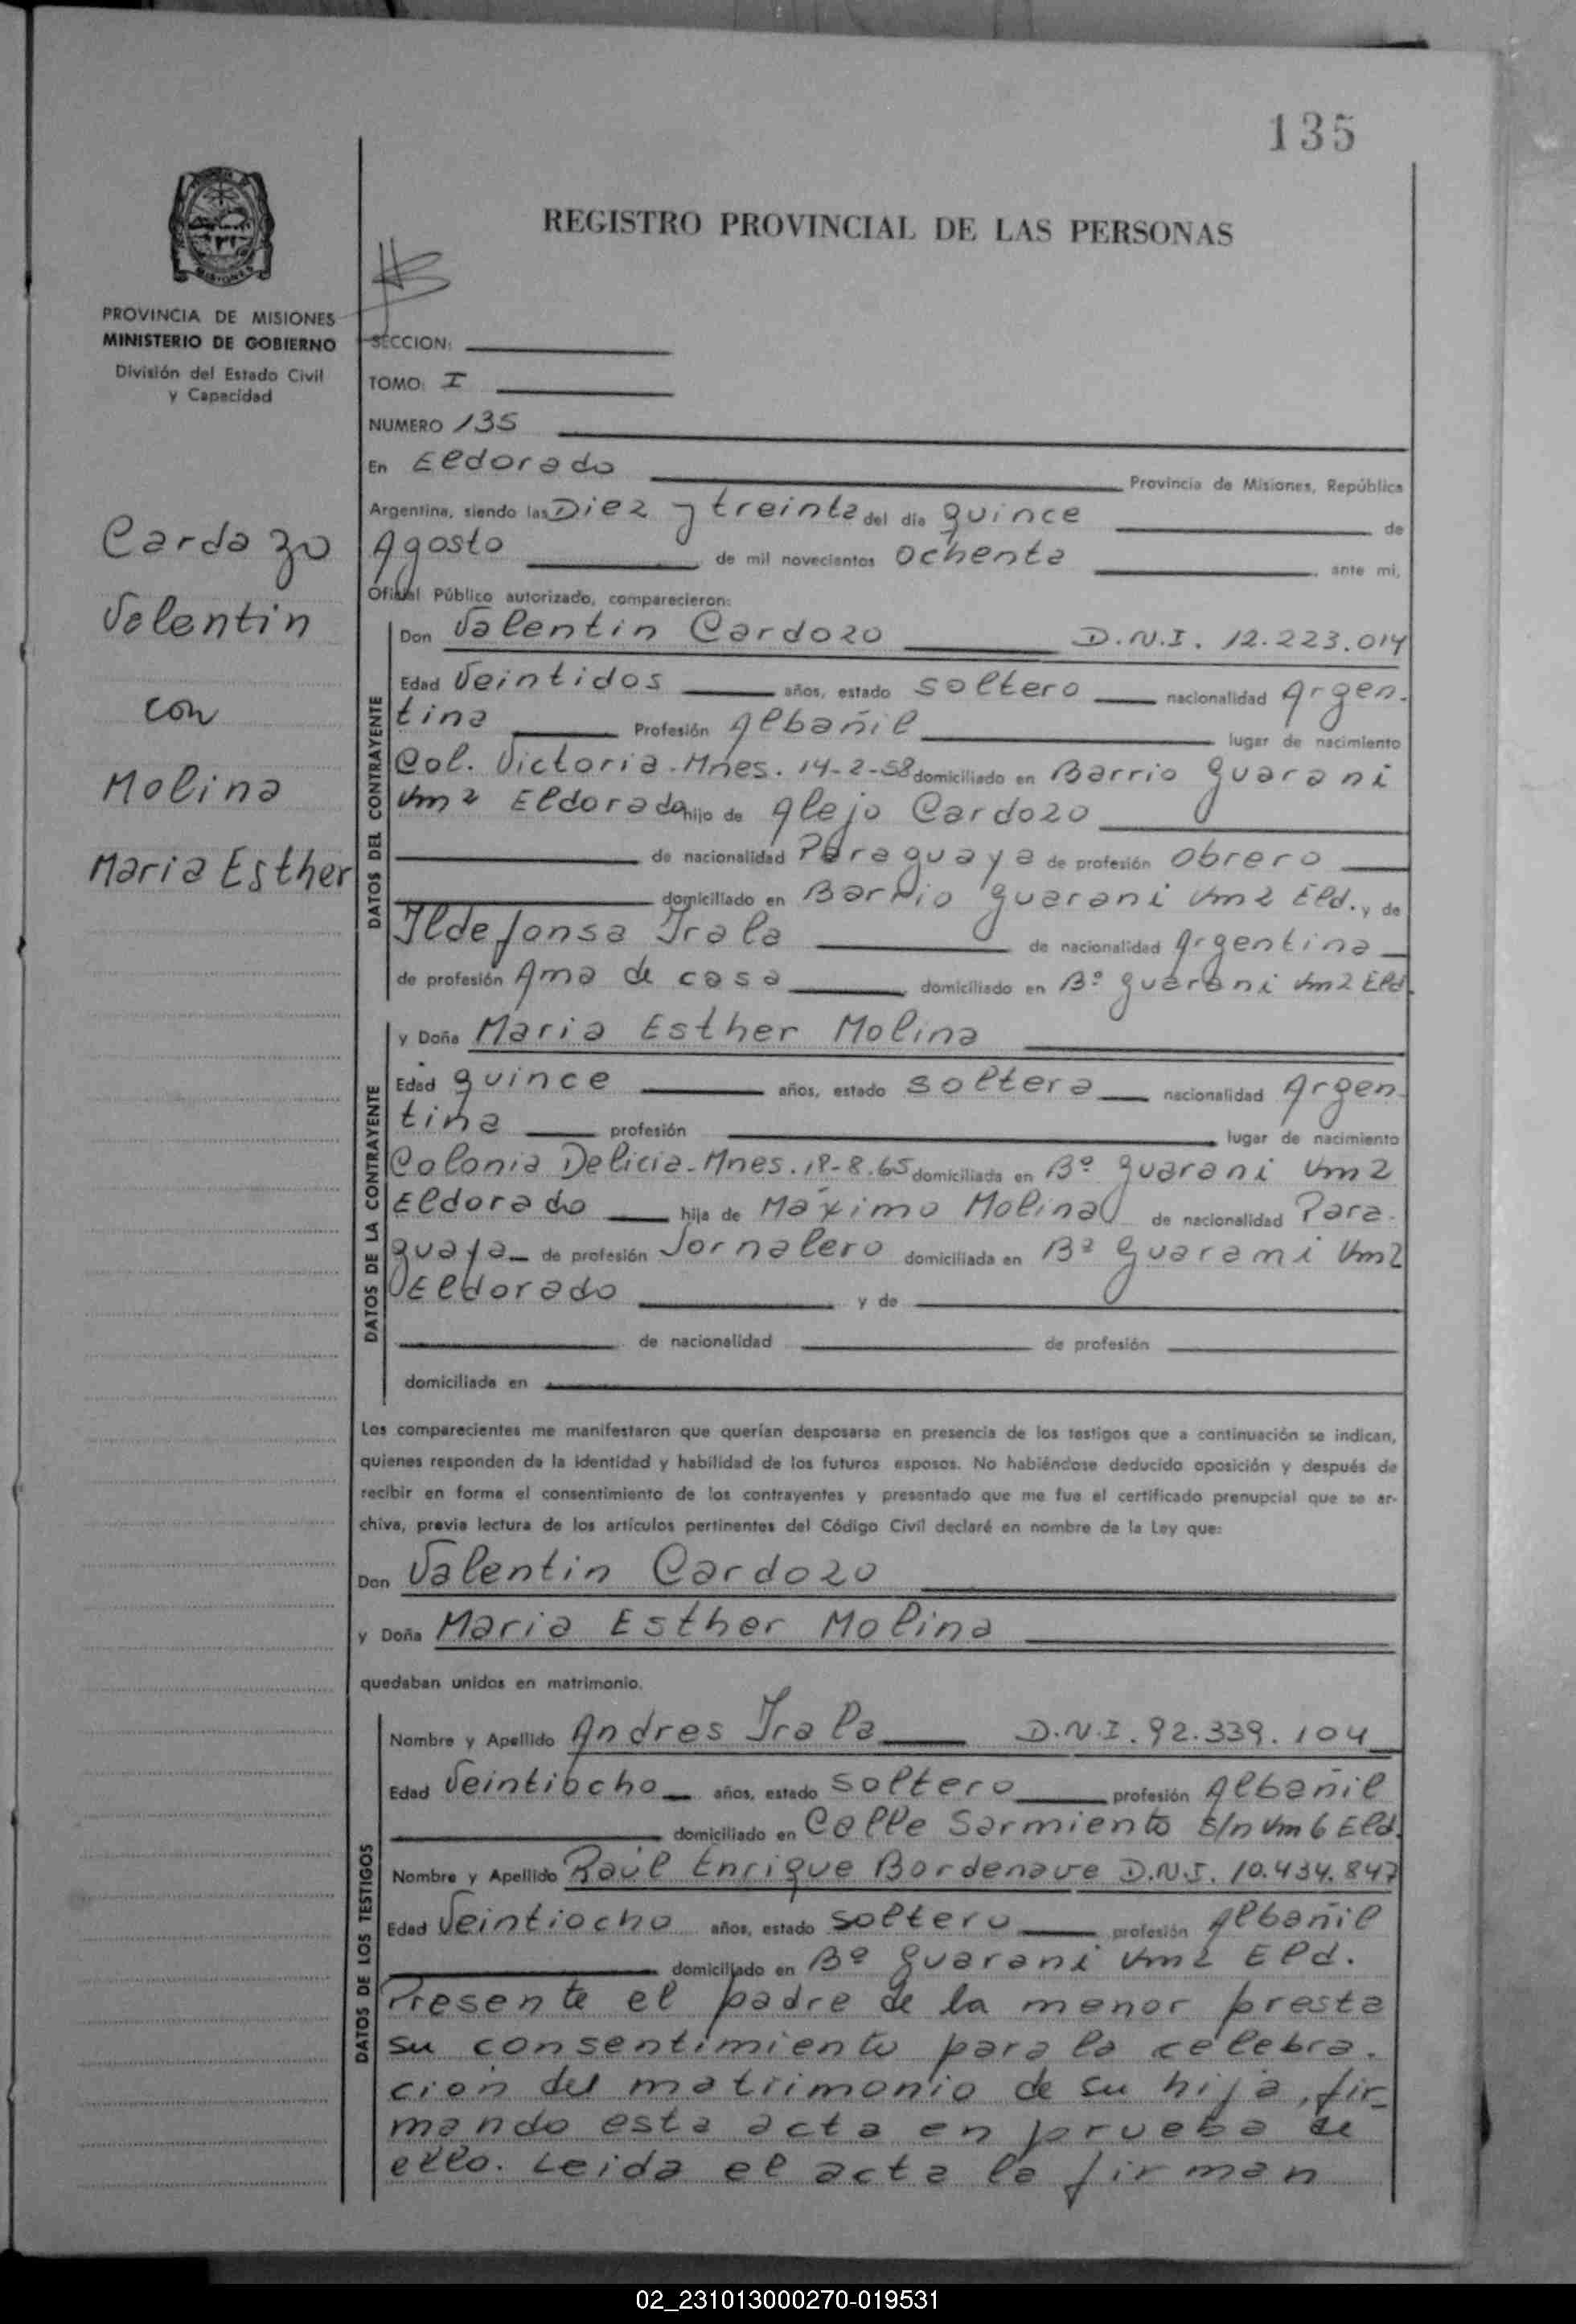 135
REGISTRO PROVINCIAL DE LAS PERSONAS
MISIONES
PROVINCIA DE MISIONES
MINISTERIO DE GOBIERNO
División del Estado Civil
y Capacidad
Cardozo
Valentin
con
Molina
Maria Esther
SECCION:
TOMO: I
NUMERO 135
En Eldorado Provincia de Misiones, República
Argentina, siendo las Diez y treinta del día quince de
Agosto de mil novecientos Ochenta, ante mi,
Oficial Público autorizado, comparecieron:
DATOS DEL CONTRAYENTE
Don Valentin Cardozo D.N.I. 12.223.014
Edad Veintidos años, estado soltero nacionalidad Argen-
tina Profesión Albañil lugar de nacimiento
Col. Victoria. Mnes. 14-2-58 domiciliado en Barrio Guarani
Km 2 Eldorado hijo de Alejo Cardozo
de nacionalidad Paraguaya de profesión Obrero
domiciliado en Barrio Guarani Km 2 Eld. y de
Ildefonsa Irala de nacionalidad Argentina
de profesión Ama de casa domiciliado en Bº Guarani Km 2 Eld.
DATOS DE LA CONTRAYENTE
y Doña Maria Esther Molina
Edad quince años, estado soltera nacionalidad Argen-
tina profesión lugar de nacimiento
Colonia Delicia. Mnes. 18-8.65 domiciliada en Bº Guarani Km 2
Eldorado hija de Máximo Molina de nacionalidad Para-
guaya de profesión Jornalero domiciliada en Bº Guarami Km 2
Eldorado y de
de nacionalidad de profesión
domiciliada en
Los comparecientes me manifestaron que querían desposarse en presencia de los testigos que a continuación se indican,
quienes responden de la identidad y habilidad de los futuros esposos. No habiéndose deducido oposición y después de
recibir en forma el consentimiento de los contrayentes y presentado que me fue el certificado prenupcial que se ar-
chiva, previa lectura de los artículos pertinentes del Código Civil declaré en nombre de la Ley que:
Don Valentin Cardozo
y Doña Maria Esther Molina
quedaban unidos en matrimonio.
DATOS DE LOS TESTIGOS
Nombre y Apellido Andres Irala D.N.I. 92.339.104
Edad Veintiocho años, estado soltero profesión Albañil
domiciliado en Calle Sarmiento s/n Km 6 Eld.
Nombre y Apellido Raúl Enrique Bordenave D.N.I. 10.434.847
Edad Veintiocho años, estado soltero profesión Albañil
domiciliado en Bº Guarani Km 2 Eld.
Presente el padre de la menor presta
su consentimiento para la celebra-
cion del matrimonio de su hija, fir-
mando esta acta en prueba de
ello. Leida el acta la firman
02_231013000270-019531